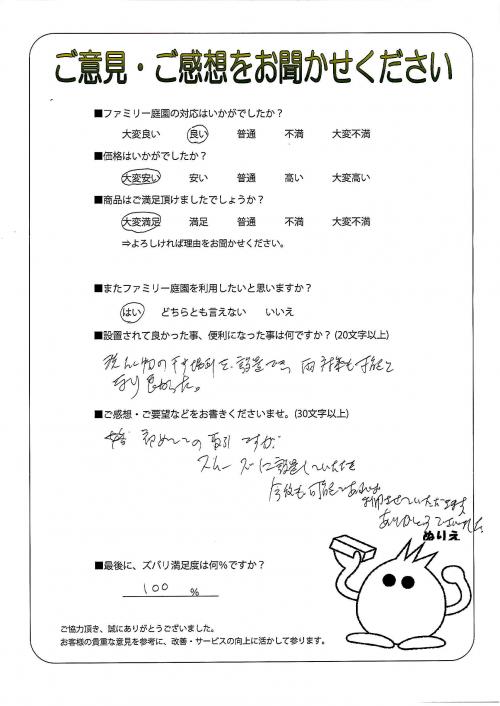 ご意見・ご感想をお聞かせください
■ファミリー庭園の対応はいかがでしたか？
大変良い 良い 普通 不満 大変不満
■価格はいかがでしたか？
大変安い 安い 普通 高い 大変高い
■商品はご満足頂けましたでしょうか？
大変満足 満足 普通 不満 大変不満
⇒よろしければ理由をお聞かせください。
■またファミリー庭園を利用したいと思いますか？
はい どちらとも言えない いいえ
■設置されて良かった事、便利になった事は何ですか？(20文字以上)
洗たく物の干す場所を設置でき、雨対策も可能と
なり良かった。
■ご感想・ご要望などをお書きくださいませ。(30文字以上)
初めての取引ですが
スムーズに設置していただき
今後も可能であれば
利用させていただきます
ありがとうございました
ぬりえ
■最後に、ズバリ満足度は何％ですか？
100 ％
ご協力頂き、誠にありがとうございました。
お客様の貴重な意見を参考に、改善・サービスの向上に活かして参ります。